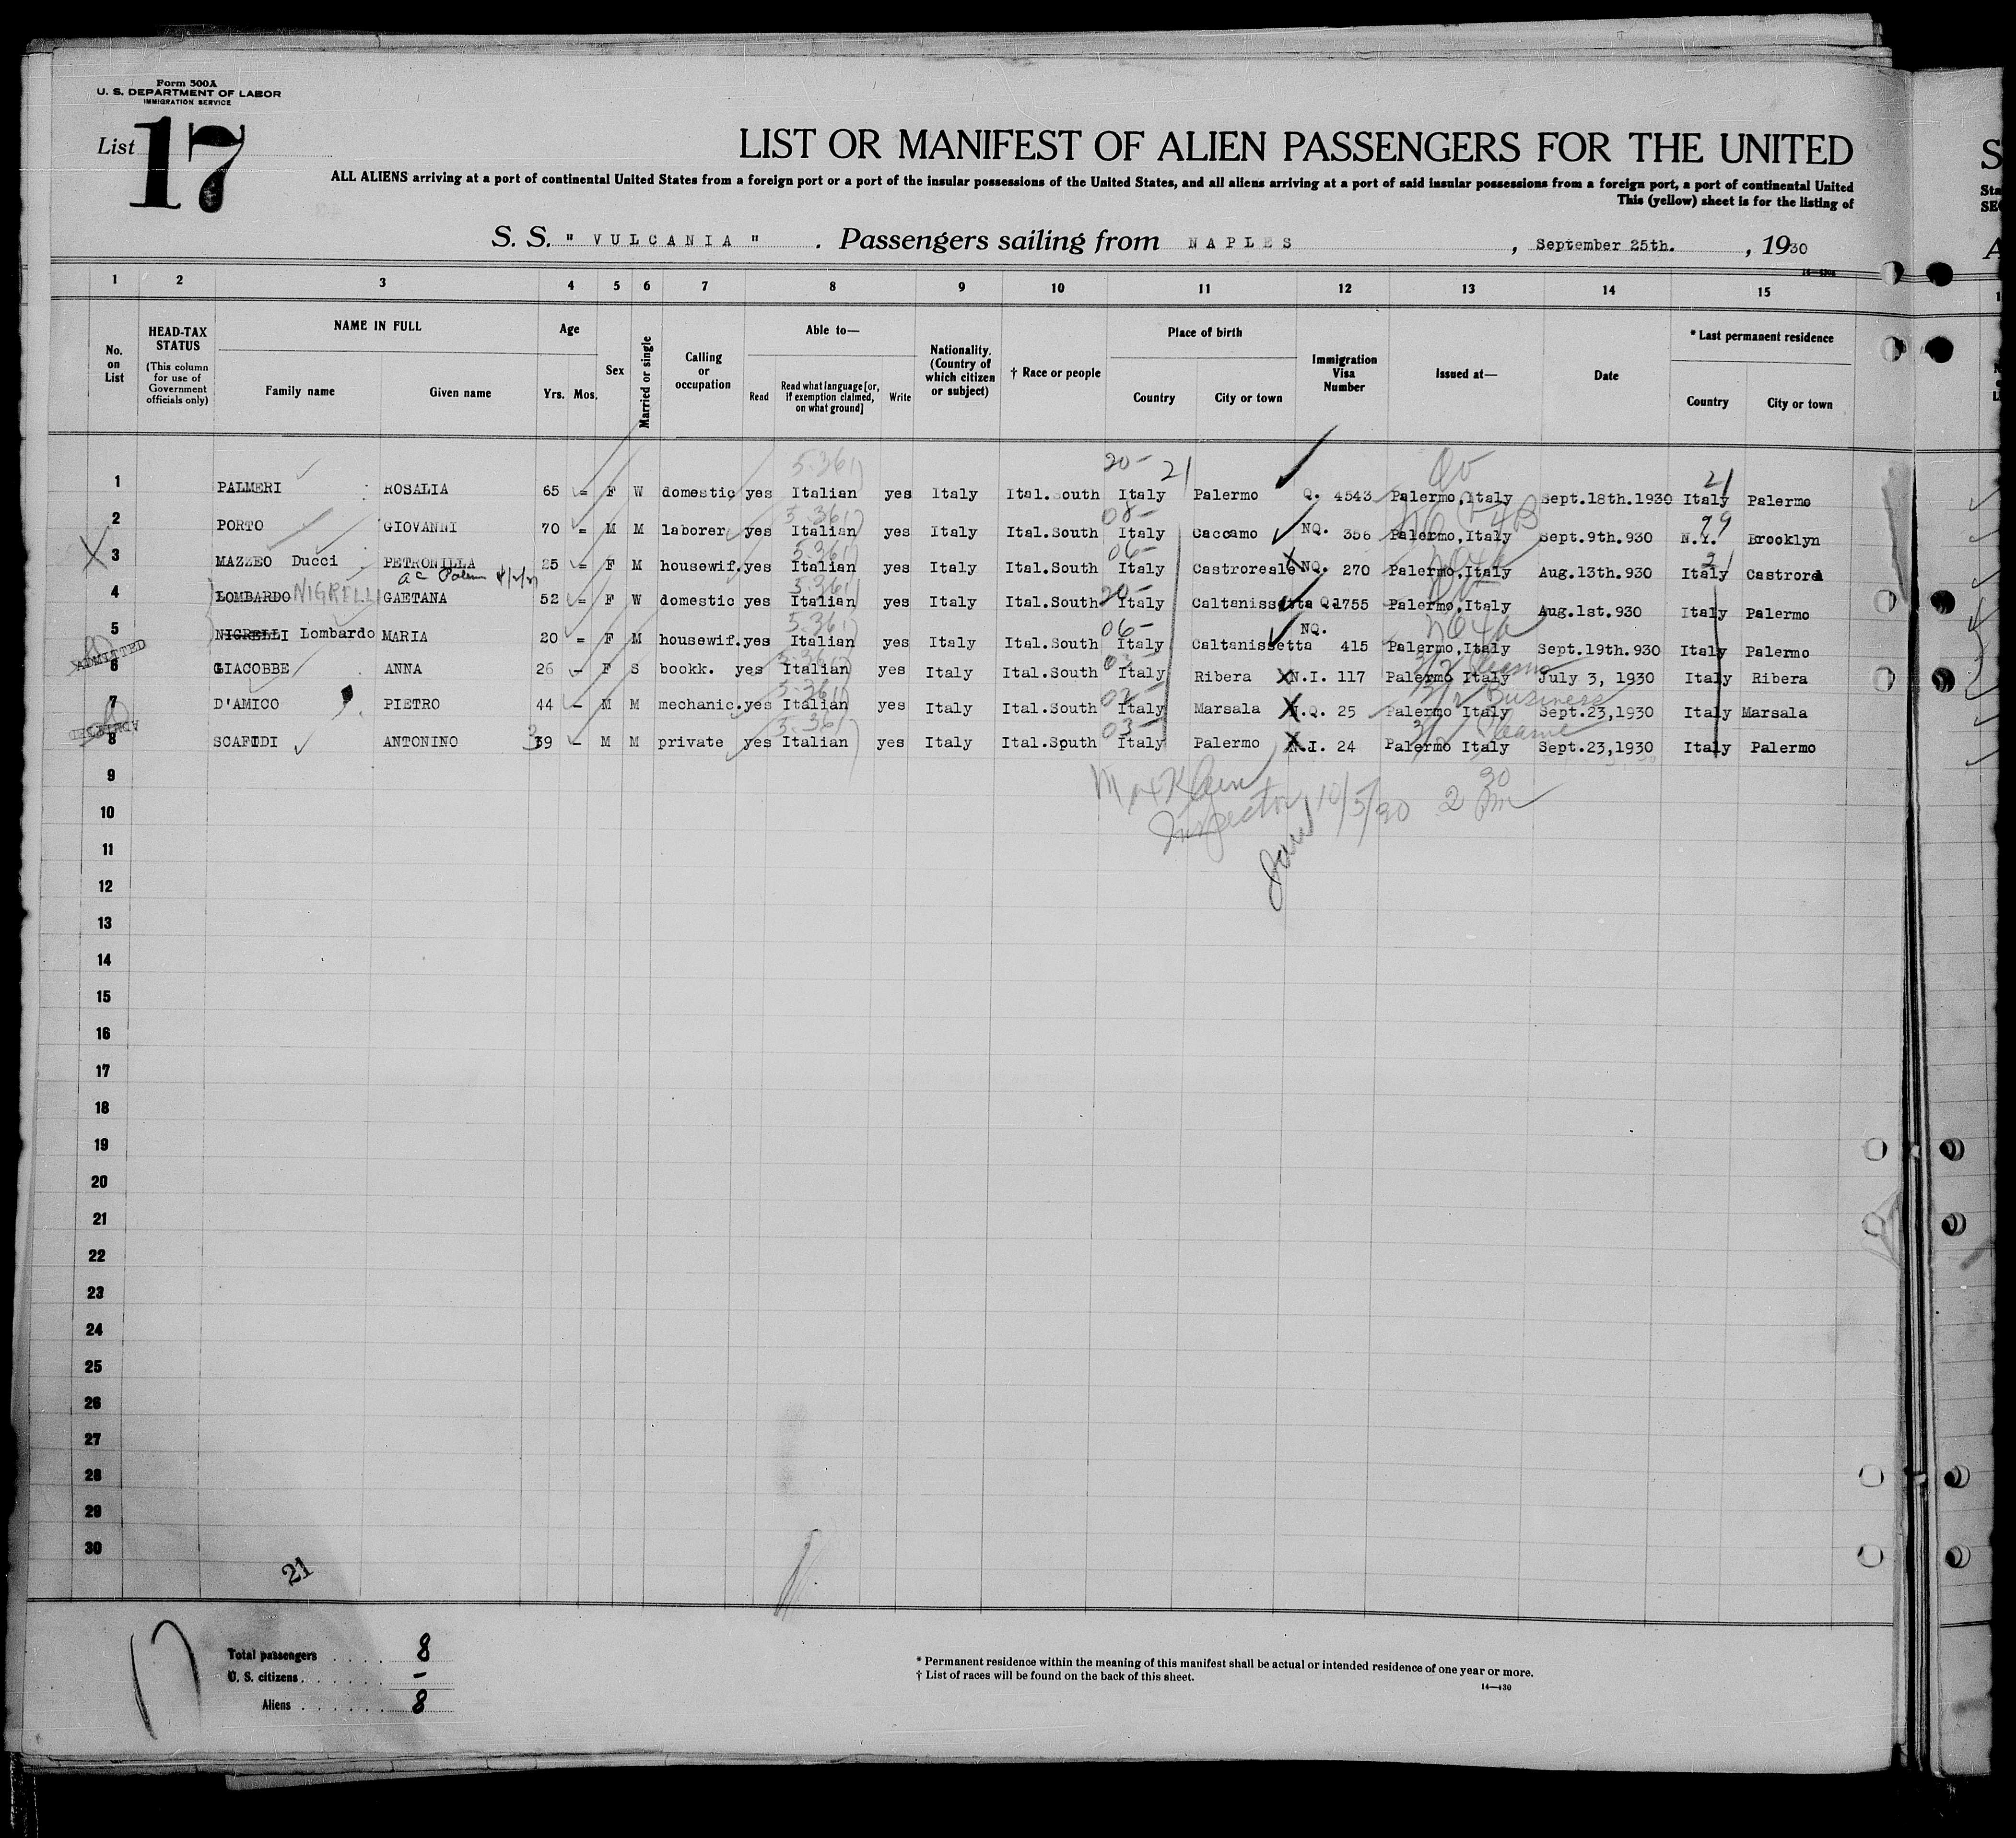 Form 500A
U. S. DEPARTMENT OF LABOR
IMMIGRATION SERVICE
List 17
LIST OR MANIFEST OF ALIEN PASSENGERS FOR THE UNITED
ALL ALIENS arriving at a port of continental United States from a foreign port or a port of the insular possessions of the United States, and all aliens arriving at a port of said insular possessions from a foreign port, a port of continental United
This (yellow) sheet is for the listing of
S. S. " VULCANIA " . Passengers sailing from NAPLES , September 25th. , 1930
1 2 3 4 5 6 7 8 9 10 11 12 13 14 15
No. on List
HEAD-TAX STATUS
(This column for use of Government officials only)
NAME IN FULL
Family name Given name
Age
Yrs. Mos.
Sex
Married or single
Calling or occupation
Able to—
Read Read what language [or, if exemption claimed, on what ground] Write
Nationality. (Country of which citizen or subject)
† Race or people
Place of birth
Country City or town
Immigration Visa Number
Issued at—
Date
* Last permanent residence
Country City or town
1 PALMERI ROSALIA 65 - F W domestic yes Italian yes Italy Ital.South Italy Palermo Q. 4543 Palermo,Italy Sept.18th.1930 Italy Palermo
2 PORTO GIOVANNI 70 = M M laborer yes Italian yes Italy Ital.South Italy Caccamo NQ. 356 Palermo,Italy Sept.9th.930 N.Y. Brooklyn
3 MAZZEO Ducci PETRONILLA 25 = F M housewif. yes Italian yes Italy Ital.South Italy Castroreale NQ. 270 Palermo,Italy Aug.13th.930 Italy Castrorea
4 LOMBARDO NIGRELLI GAETANA 52 = F W domestic yes Italian yes Italy Ital.South Italy Caltanissetta Q 1755 Palermo,Italy Aug.1st.930 Italy Palermo
5 NIGRELLI Lombardo MARIA 20 = F M housewif. yes Italian yes Italy Ital.South Italy Caltanissetta NQ. 415 Palermo,Italy Sept.19th.930 Italy Palermo
ADMITTED
6 GIACOBBE ANNA 26 - F S bookk. yes Italian yes Italy Ital.South Italy Ribera N.I. 117 Palermo Italy July 3, 1930 Italy Ribera
7 D'AMICO PIETRO 44 - M M mechanic. yes Italian yes Italy Ital.South Italy Marsala N.Q. 25 Palermo Italy Sept.23,1930 Italy Marsala
8 SCAFIDI ANTONINO 39 - M M private yes Italian yes Italy Ital.South Italy Palermo N.I. 24 Palermo Italy Sept.23,1930 Italy Palermo
9
Max Klein
10 Inspector 10/5/30 2 30 Pm
11
12
13
14
15
16
17
18
19
20
21
22
23
24
25
26
27
28
29
30
21
17
Total passengers . . . . . 8
U. S. citizens . . . . . . . –
Aliens . . . . . . 8
* Permanent residence within the meaning of this manifest shall be actual or intended residence of one year or more.
† List of races will be found on the back of this sheet.
14—430